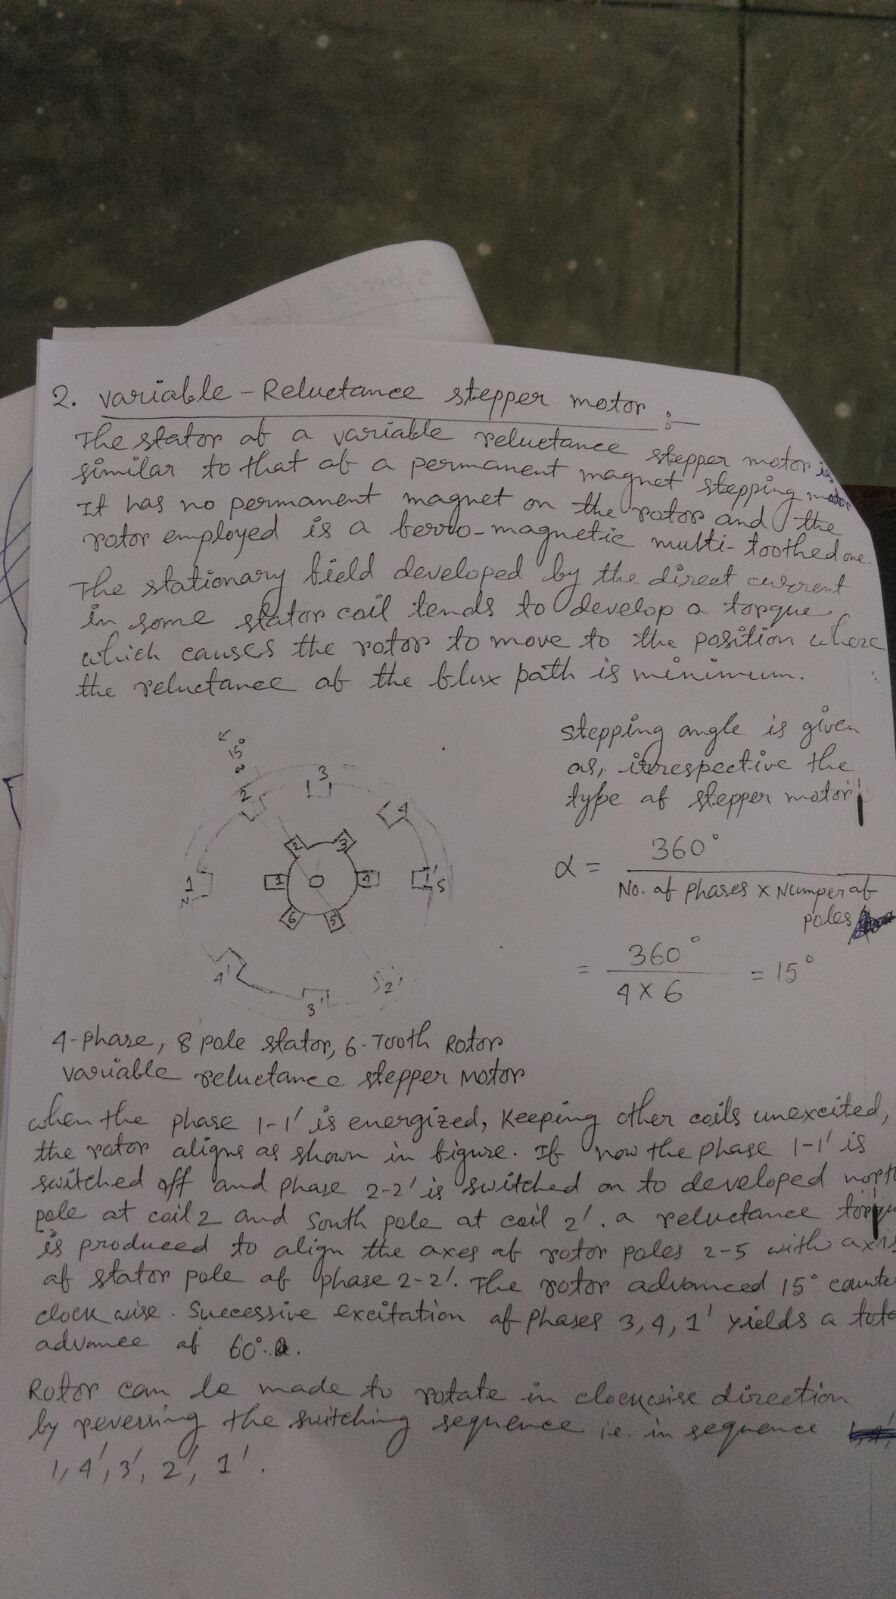 2. Variable-Reluctance stepper motor :-
The stator of a variable reluctance stepper motor is
similar to that of a permanent magnet stepping motor
It has no permanent magnet on the rotor and the
rotor employed is a ferro-magnetic multi-toothed one.
The stationary field developed by the direct current
in some stator coil tends to develop a torque
which causes the rotor to move to the position where
the reluctance of the flux path is minimum.
stepping angle is given
as, irrespective the
type of stepper motor
α = 360° / No. of phases x Numper of poles
= 360° / 4 x 6 = 15°
15°
2
3
4
1
N
1'
S
4'
3'
2'
1
2
3
4
5
6
4-phase, 8 pole stator, 6-Tooth Rotor
variable reluctance stepper Motor
when the phase 1-1' is energized, Keeping other coils unexcited,
the rotor aligns as shown in figure. If now the phase 1-1' is
switched off and phase 2-2' is switched on to developed north
pole at coil 2 and South pole at coil 2'. a reluctance torque
is produced to align the axes of rotor poles 2-5 with axis
of stator pole of phase 2-2'. The rotor advanced 15° counte
clock wise. Successive excitation of phases 3, 4, 1' yields a tota
advance of 60°.
Rotor can be made to rotate in clockwise direction
by reversing the switching sequence i.e. in sequence
1, 4', 3', 2', 1'.